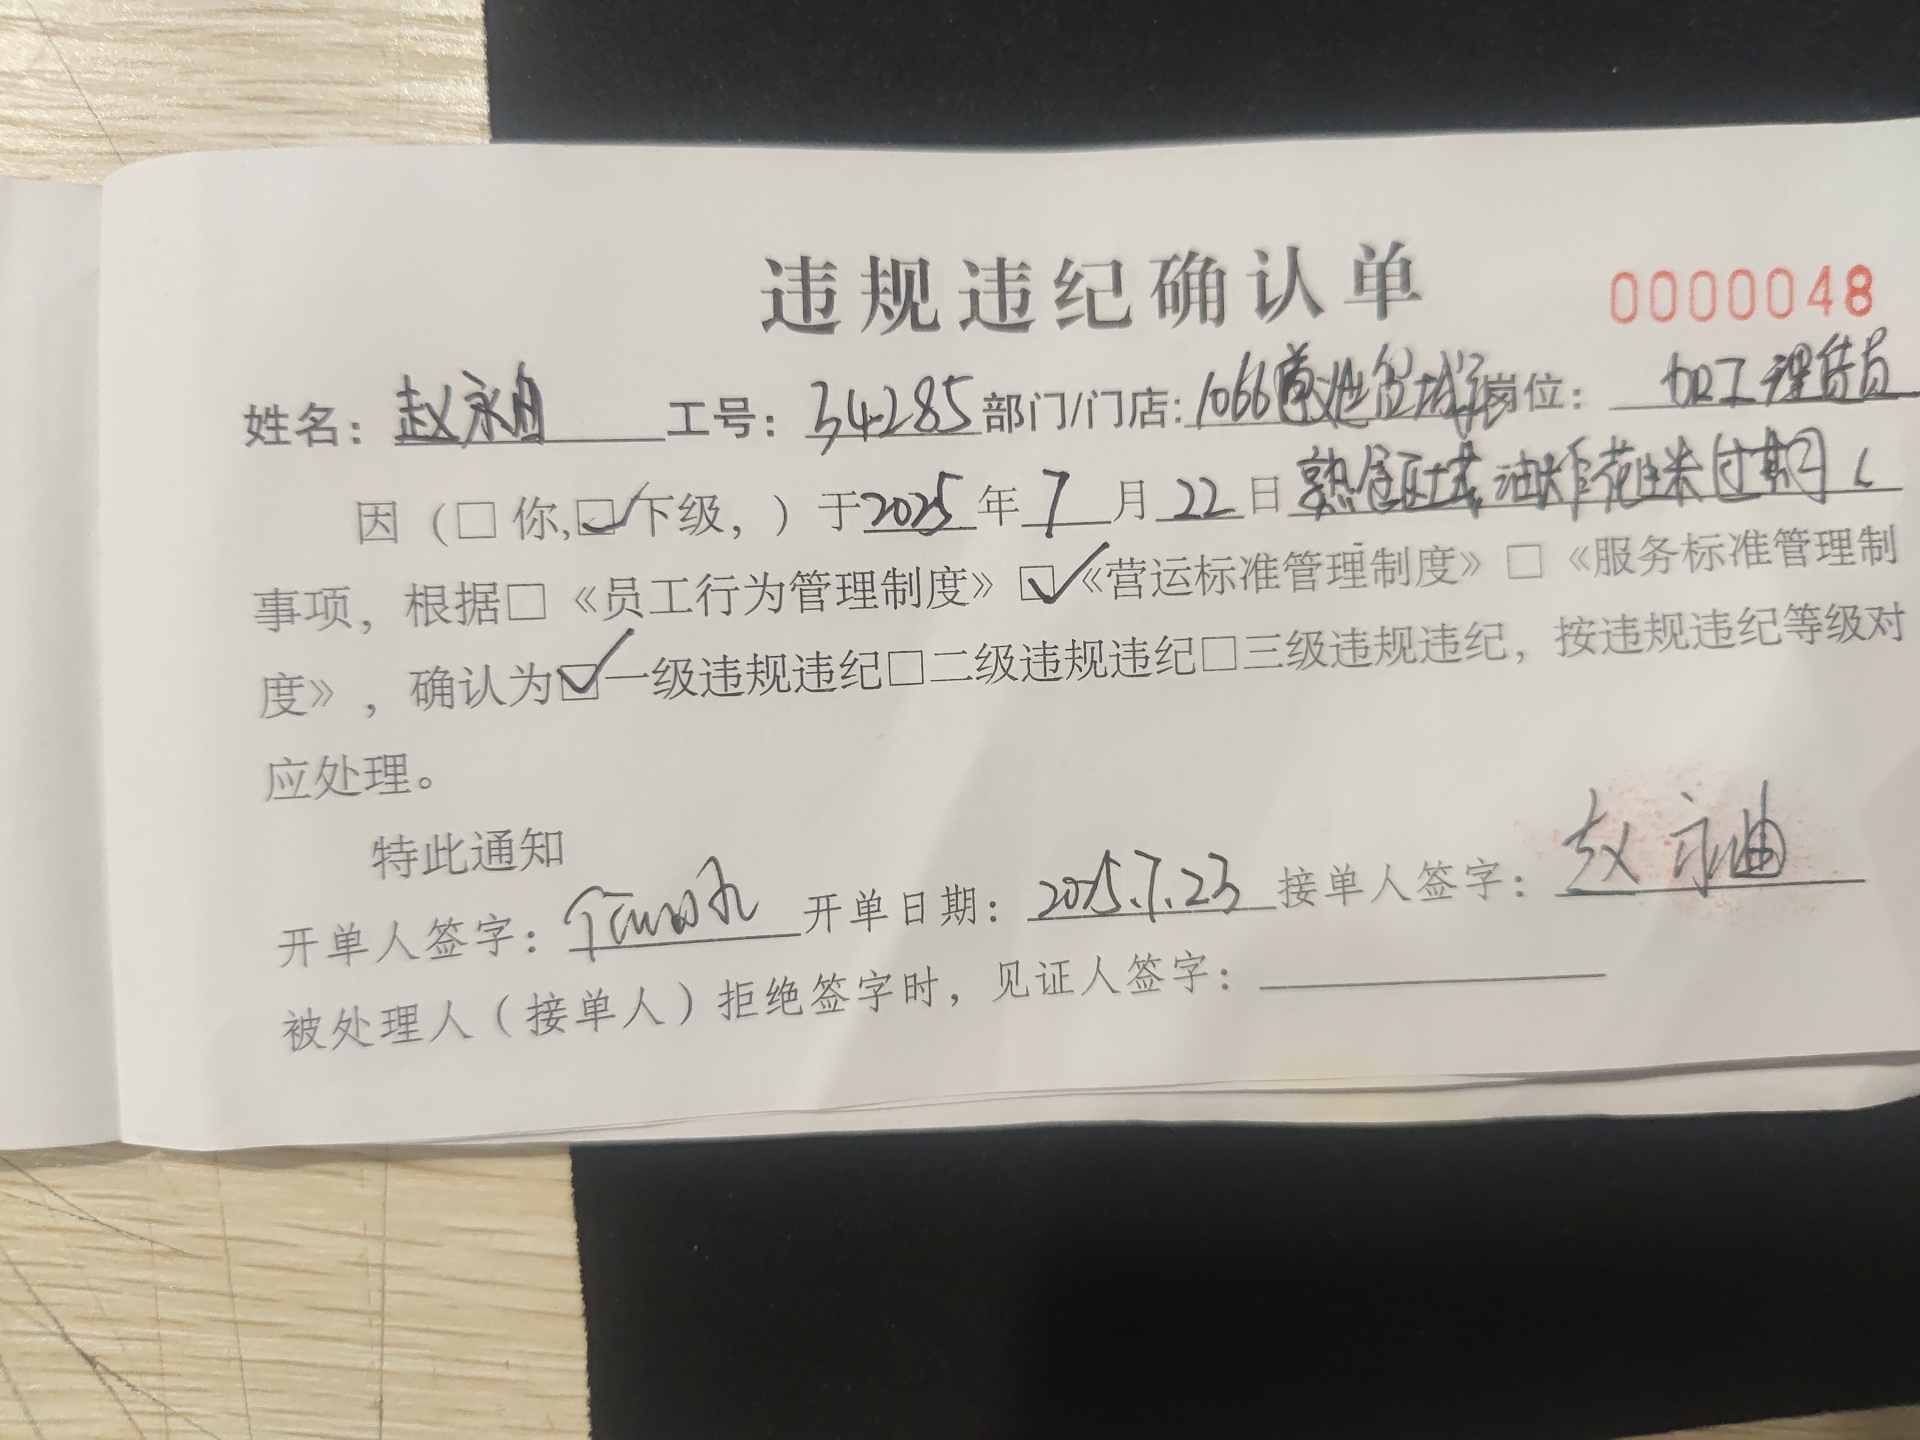 违规违纪确认单
0000048
姓名：赵永 工号：34285 部门/门店：1066 岗位：加工理货员
因（□你,☑下级，）于2025年7月22日熟食 油炸花生米过期（
事项，根据□《员工行为管理制度》☑《营运标准管理制度》□《服务标准管理制
度》，确认为☑一级违规违纪□二级违规违纪□三级违规违纪，按违规违纪等级对
应处理。
特此通知
开单人签字： 开单日期：2025.7.23 接单人签字：赵永油
被处理人（接单人）拒绝签字时，见证人签字：